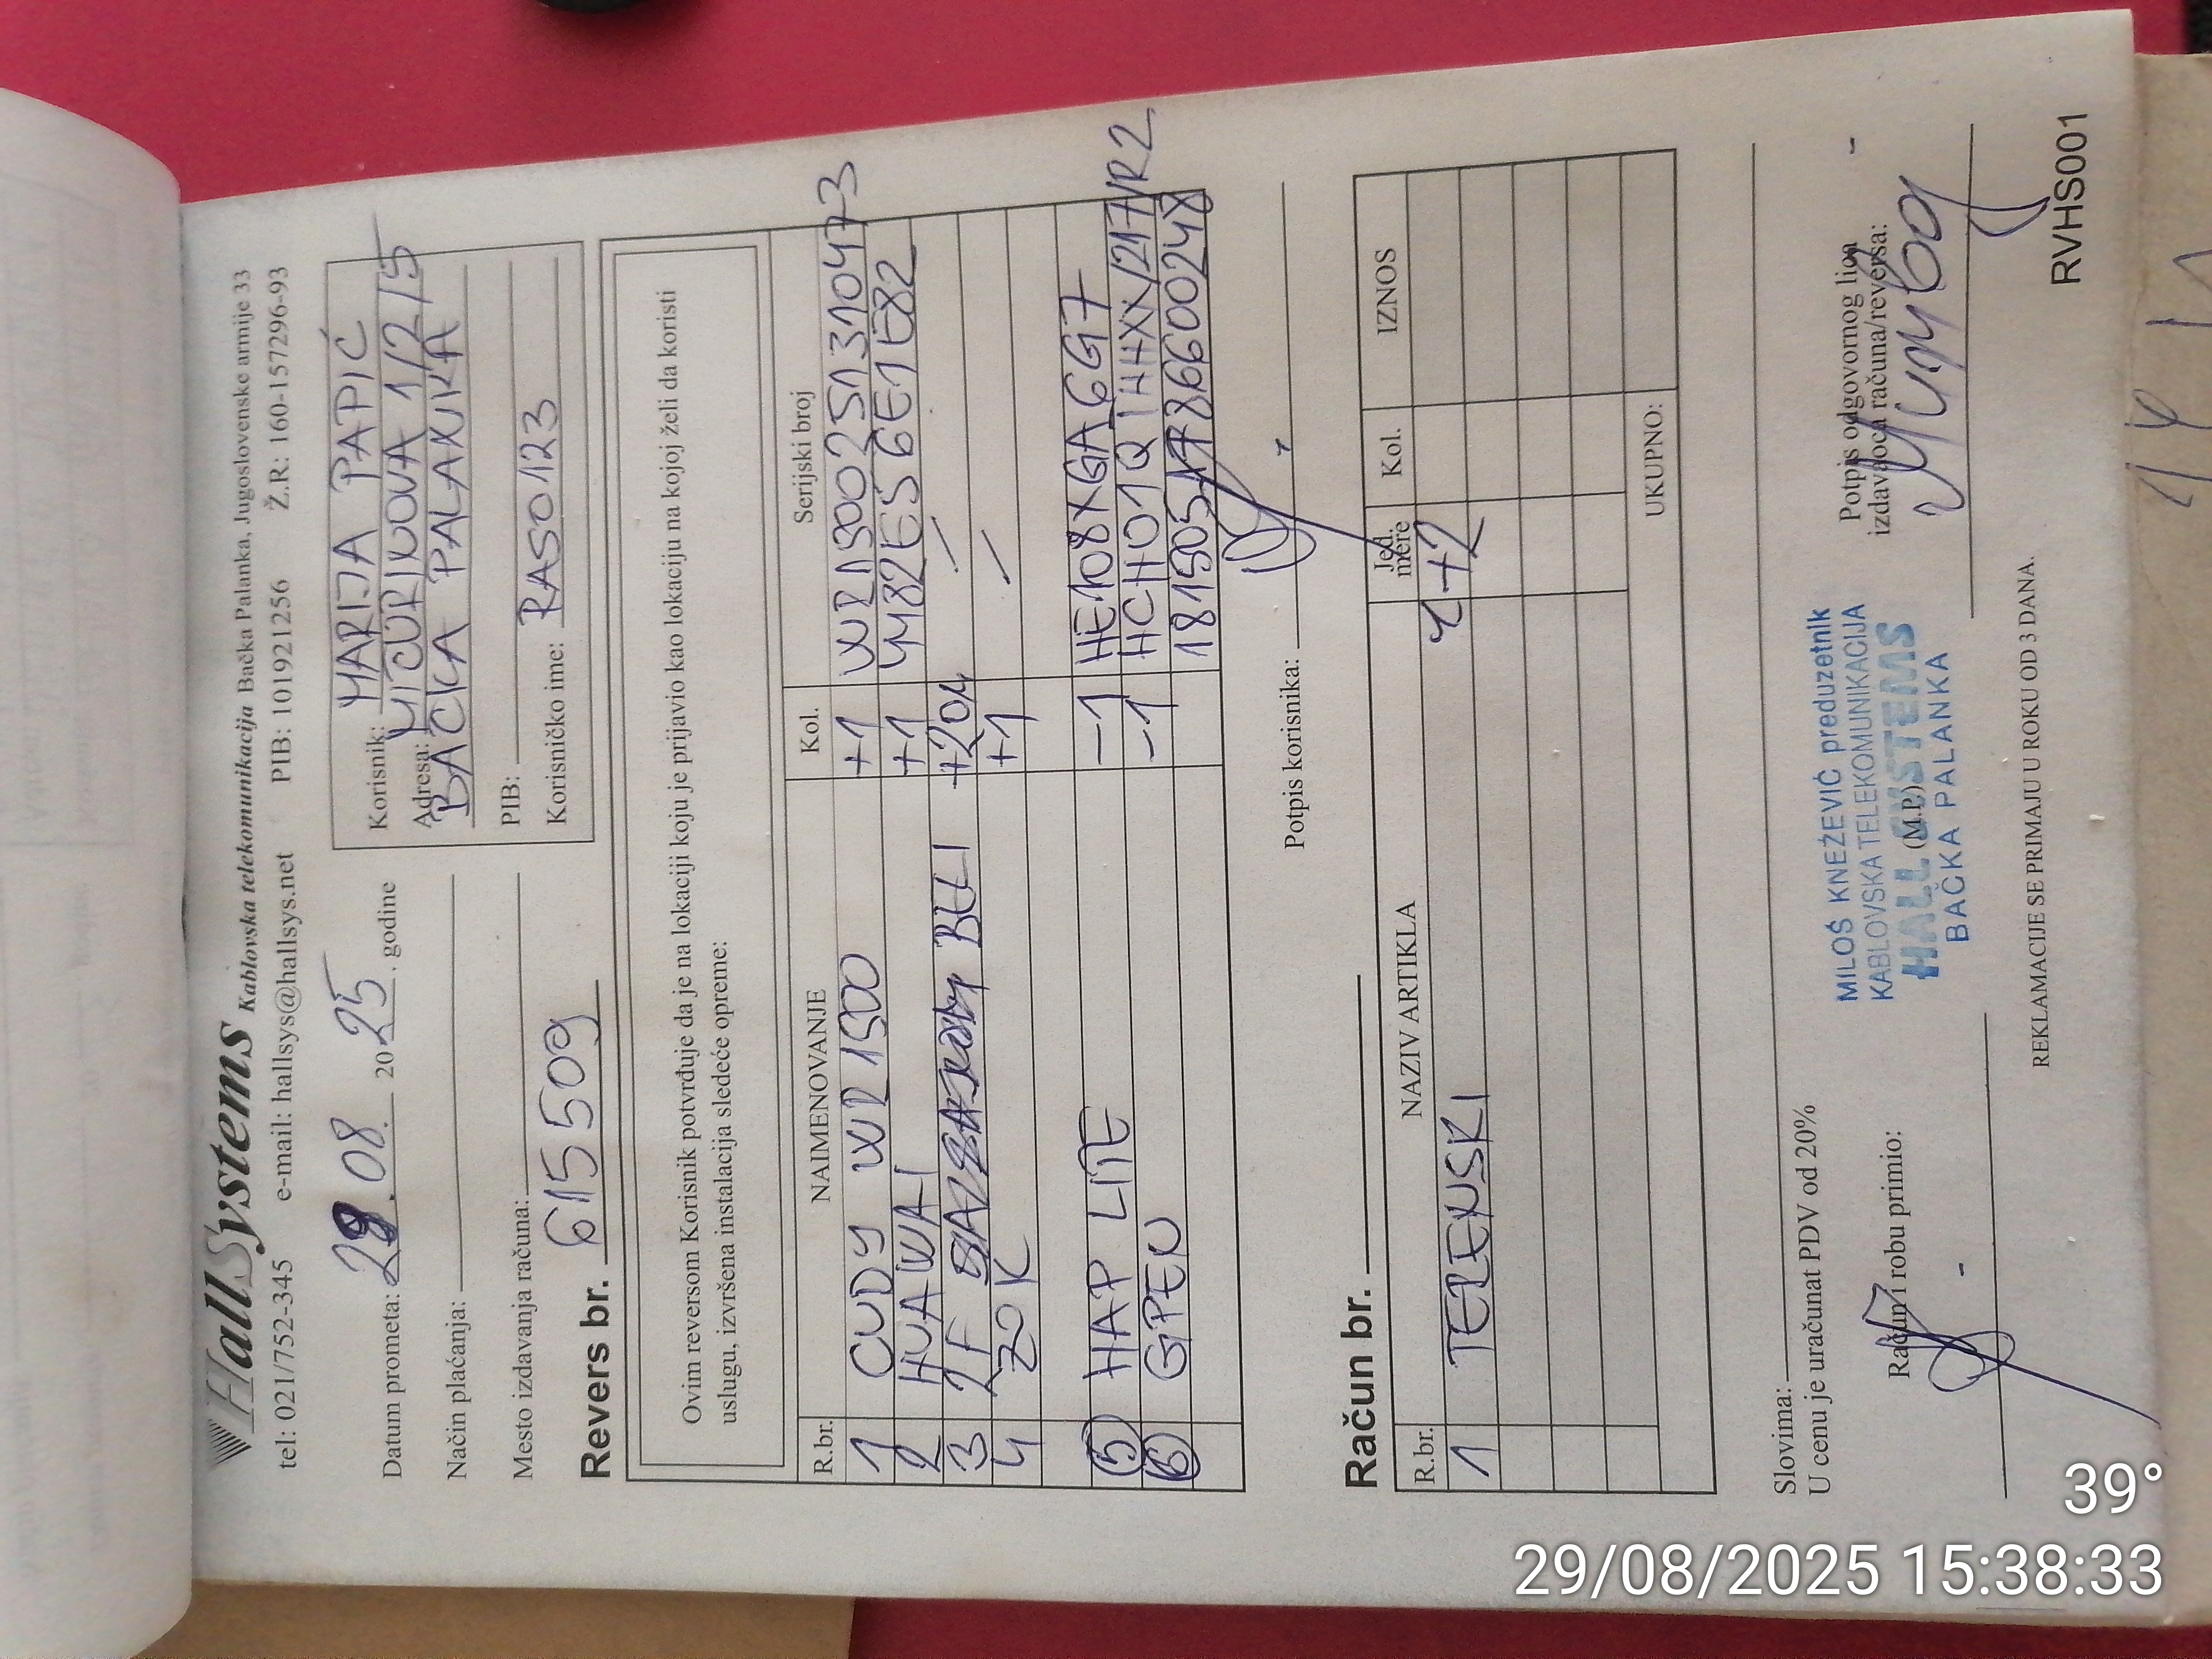 HallSystems Kablovska telekomunikacija Bačka Palanka, Jugoslovenske armije 33
tel: 021/752-345 e-mail: hallsys@hallsys.net PIB: 101921256 Ž.R: 160-157296-93
Datum prometa: 29.08. 2025. godine
Način plaćanja:
Mesto izdavanja računa:
Korisnik: MARIJA PAPIĆ
Adresa: MIČURINOVA 1/2/5
BAČKA PALANKA
PIB:
Korisničko ime: RASO123
Revers br. 615509
Ovim reversom Korisnik potvrđuje da je na lokaciji koju je prijavio kao lokaciju na kojoj želi da koristi
uslugu, izvršena instalacija sledeće opreme:
R.br. NAIMENOVANJE Kol. Serijski broj
1 CUDY WR1500 +1 WR15002513104773
2 HUAWAI +1 4M82E56E1E82
3 2F BELI +20м /
4 ZOK +1 /
5 HAP LITE -1 HE108XGA6G7
6 GPEN -1 HCH01Q1HHXX/217/R2
Potpis korisnika:
Račun br.
R.br. NAZIV ARTIKLA Jed. mere Kol. IZNOS
1 TERENSKI
UKUPNO:
Slovima:
U cenu je uračunat PDV od 20%
Račun i robu primio:
MILOŠ KNEŽEVIĆ preduzetnik
KABLOVSKA TELEKOMUNIKACIJA
HALL SYSTEMS
(M.P.)
BAČKA PALANKA
Potpis odgovornog lica
izdavaoca računa/reversa:
REKLAMACIJE SE PRIMAJU U ROKU OD 3 DANA.
RVHS001
39°
29/08/2025 15:38:33